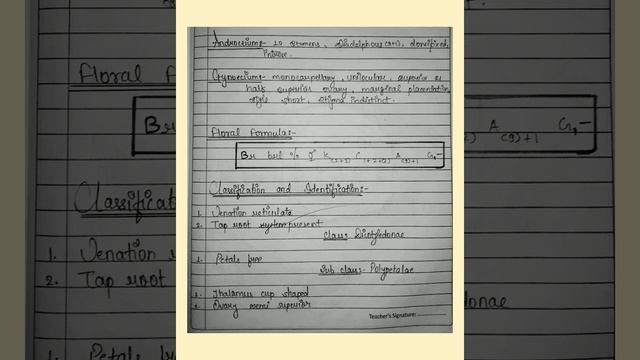 Androecium:- 10 stamens, diadelphous (9+1), dorsifixed,
introse.
Gynoecium:- monocarpellary, unilocular, superior or
half superior ovary, marginal placentation,
style short, stigma indistinct.
Floral Formula:-
Br brl % K(2+3) C1+2+(2) A(9)+1 G1-
Classification and Identification:-
1. Venation reticulate
2. Tap root system present
Class Dicotyledonae
1. Petals free
Sub class- Polypetalae
1. Thalamus cup shaped
2. Ovary semi superior
Teacher's Signature: